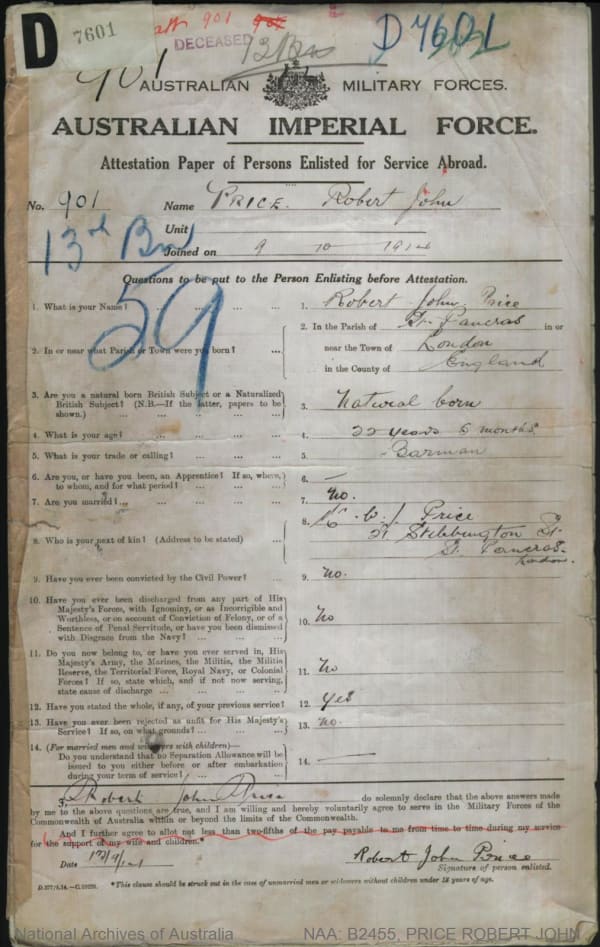 D 7601 901 D7601
DECEASED 13 Bn
901
AUSTRALIAN MILITARY FORCES.
AUSTRALIAN IMPERIAL FORCE.
Attestation Paper of Persons Enlisted for Service Abroad.
No. 901 Name PRICE. Robert John
Unit
Joined on 9 10 1914
13th Bn
Questions to be put to the Person Enlisting before Attestation.
59
1. What is your Name? ... ... ... ... 1. Robert John Price
2. In or near what Parish or Town were you born? ... 2. In the Parish of St. Pancras in or
near the Town of London
in the County of England
3. Are you a natural born British Subject or a Naturalized
British Subject? (N.B.—If the latter, papers to be
shown.) ... ... ... ... 3. Natural born
4. What is your age? ... ... ... ... 4. 22 years 6 months
5. What is your trade or calling? ... ... ... 5. Barman
6. Are you, or have you been, an Apprentice? If so, where,
to whom, and for what period? ... ... ... 6. —
7. Are you married? ... ... ... 7. No.
8. Who is your next of kin? (Address to be stated) ... 8. Price
21 Stibbington St.
St. Pancras.
London.
9. Have you ever been convicted by the Civil Power? ... 9. No.
10. Have you ever been discharged from any part of His
Majesty's Forces, with Ignominy, or as Incorrigible and
Worthless, or on account of Conviction of Felony, or of a
Sentence of Penal Servitude, or have you been dismissed
with Disgrace from the Navy? ... ... ... 10. No
11. Do you now belong to, or have you ever served in, His
Majesty's Army, the Marines, the Militia, the Militia
Reserve, the Territorial Force, Royal Navy, or Colonial
Forces? If so, state which, and if not now serving,
state cause of discharge ... ... ... ... 11. No
12. Have you stated the whole, if any, of your previous service? 12. Yes
13. Have you ever been rejected as unfit for His Majesty's
Service? If so, on what grounds? ... ... ... 13. No.
14. (For married men and widowers with children)—
Do you understand that no Separation Allowance will be
issued to you either before or after embarkation
during your term of service? ... ... ... 14. —
I, Robert John Price do solemnly declare that the above answers made
by me to the above questions are true, and I am willing and hereby voluntarily agree to serve in the Military Forces of the
Commonwealth of Australia within or beyond the limits of the Commonwealth.
And I further agree to allot not less than two-fifths of the pay payable to me from time to time during my service
for the support of my wife and children.*
Date Robert John Price
Signature of person enlisted.
*This clause should be struck out in the case of unmarried men or widowers without children under 18 years of age.
National Archives of Australia NAA: B2455, PRICE ROBERT JOHN